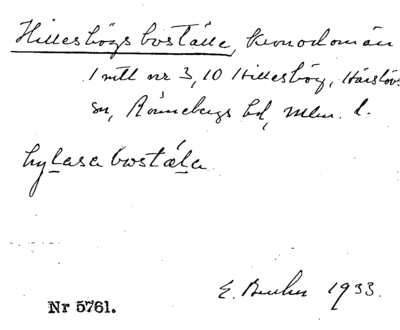 Hilleshögs boställe, kronodomän
1 mtl nr 3, 10 Hilleshög, Härslövs
sn, Rönnebergs hd, Mlm. l.
hylasa bostäla
E. 1933.
Nr 5761.